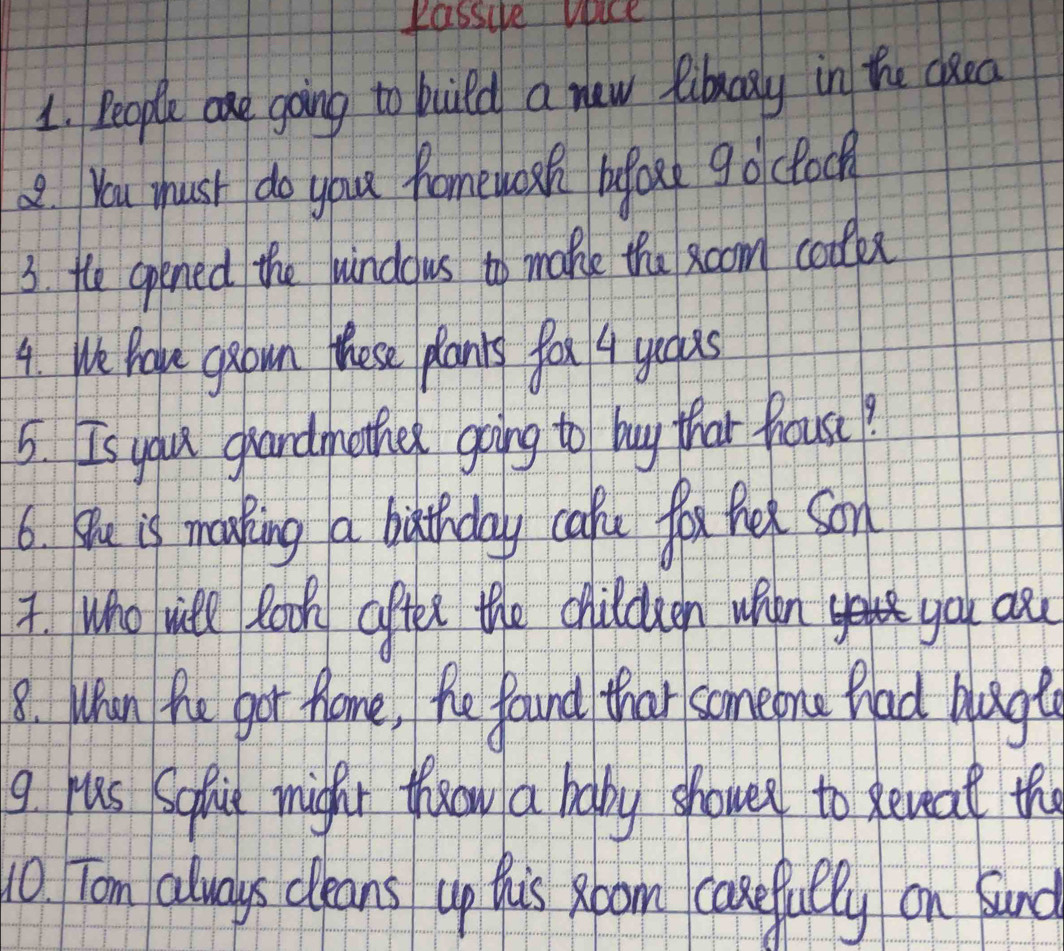 Passive Voice
1. People are going to build a new library in the area
2. You must do your homework before 9 o'clock
3. He opened the windows to make the room cooler
4. We have grown these plants for 4 years
5. Is your grandmother going to buy that house?
6. She is making a birthday cake for her son
7. Who will look after the children when you are
8. When he got home, he found that someone had burgl
9. Mrs Sophie might throw a baby shower to reveal the
10. Tom always cleans up his room carefully on Sund